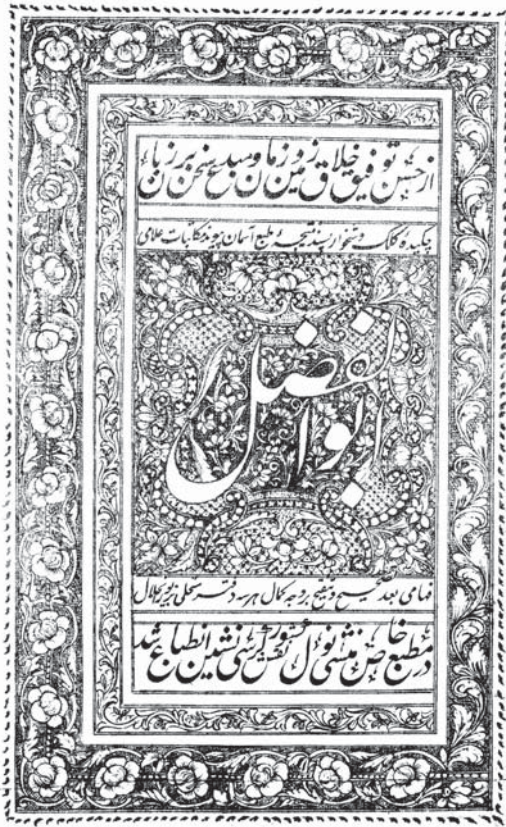 از حسن توفیق خلاق زمین و زمان و مبدع سخن بر زبان
چکیده کلک نتیجه طبع آسمان پیوند مکاتبات علامی
ابوالفضل
بعد تصحیح و تنقیح بروجه کمال هر سه دفتر محلی
در مطبع خاص منشی نولکشور نقش کرسی نشین انطباع شد